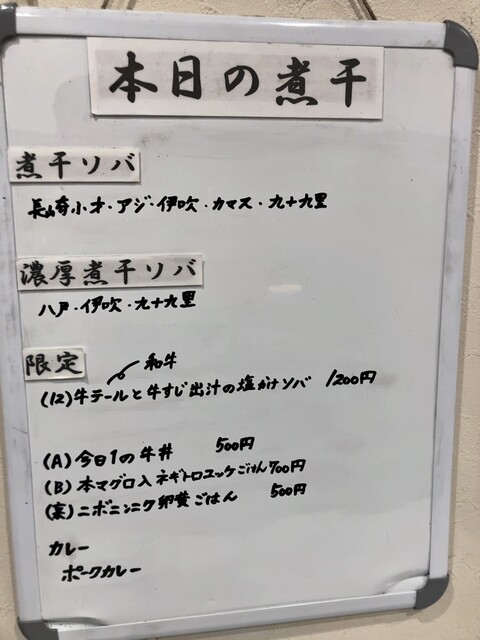 本日の煮干
煮干ソバ
長崎小才・アジ・伊吹・カマス・九十九里
濃厚煮干ソバ
八戸・伊吹・九十九里
限定
和牛
(12)牛テールと牛すじ出汁の塩かけソバ 1200円
(A)今日1の牛丼 500円
(B)本マグロ入ネギトロユッケごはん700円
ニボニンニク卵黄ごはん 500円
カレー
ポークカレー